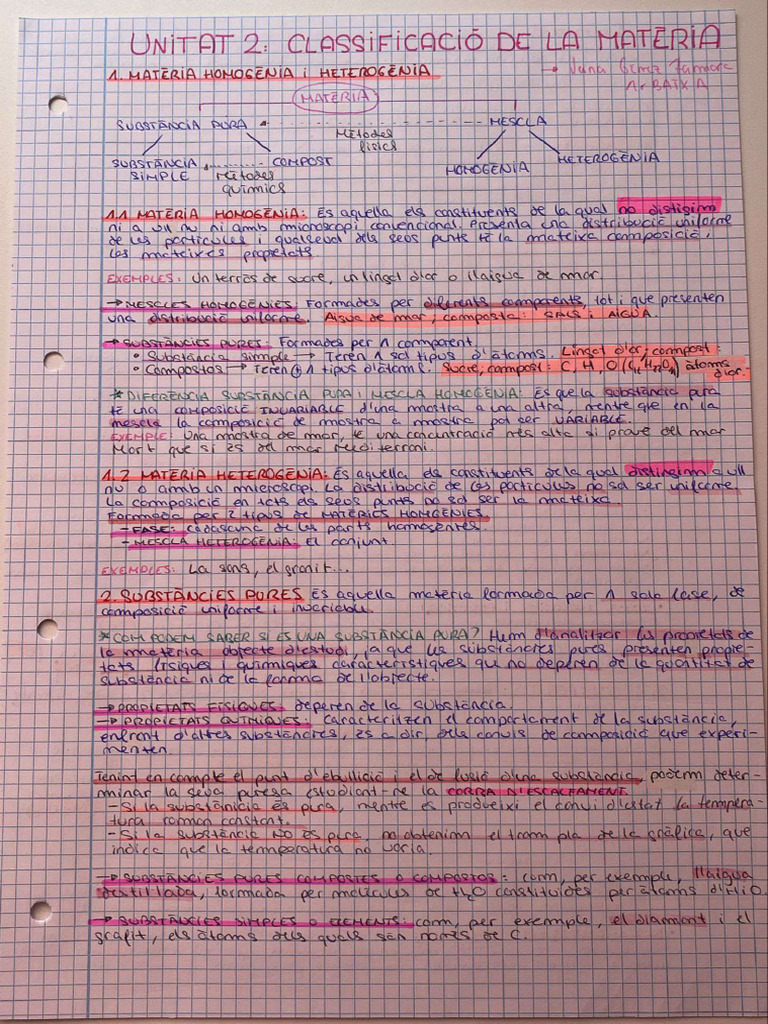 UNITAT 2: CLASSIFICACIÓ DE LA MATÈRIA
1. MATÈRIA HOMOGÈNIA i HETEROGÈNIA
1r BATX A
MATÈRIA
SUBSTÀNCIA PURA MESCLA
Mètodes
físics
SUBSTÀNCIA COMPOST
SIMPLE Mètodes
químics
HOMOGÈNIA HETEROGÈNIA
1.1 MATÈRIA HOMOGÈNIA: És aquella els constituents de la qual no distigim
ni a ull nu ni amb microscopi convencional. Presenta una distribució uniforme
de les partícules i qualsevol dels seus punts té la mateixa composició,
les mateixes propietats.
EXEMPLES: Un terròs de sucre, un lingot d'or o l'aigua de mar.
→ MESCLES HOMOGÈNIES: Formades per diferents components, tot i que presenten
una distribució uniforme. Aigua de mar, composta: SALS i AIGUA.
→ SUBSTÀNCIES PURES: Formades per 1 component.
• Substància simple → Tenen 1 sol tipus d'àtoms. Lingot d'or, compost:
• Compostos → Tenen + 1 tipus d'àtoms. Sucre, compost: C, H, O (C12H22O11) àtoms
d'or.
* DIFERÈNCIA SUBSTÀNCIA PURA i MESCLA HOMOGÈNIA: És que la substància pura
té una COMPOSICIÓ INVARIABLE d'una mostra a una altra, mentre que en la
mescla la composició de mostra a mostra pot ser VARIABLE.
EXEMPLE: Una mostra de mar, té una concentració més alta si prové del mar
Mort que si és del mar mediterrani.
1.2 MATÈRIA HETEROGÈNIA: És aquella els constituents de la qual distingim a ull
nu o amb un microscopi. La distribució de les partícules no sol ser uniforme.
La composició en tots els seus punts no sol ser la mateixa.
Formada per 2 tipus de MATÈRIES HOMGÈNIES.
- FASE: cadascuna de les parts homogènies.
- MESCLA HETEROGÈNIA: El conjunt.
EXEMPLES: La sang, el granit...
2. SUBSTÀNCIES PURES És aquella matèria formada per 1 sola fase, de
composició uniforme i invariable.
* COM PODEM SABER SI ÉS UNA SUBSTÀNCIA PURA? Hem d'analitzar les propietats de
la matèria objecte d'estudi, ja que les substàncies pures presenten propie-
tats físiques i químiques característiques que no depenen de la quantitat de
substància ni de la forma de l'objecte.
→ PROPIETATS FÍSIQUES: depenen de la substància.
→ PROPIETATS QUÍMIQUES: Caracteritzen el comportament de la substància,
enfront d'altres substàncies, és a dir, dels canvis de composició que experi-
menten.
Tenint en compte el punt d'ebullició i el de fusió d'una substància, podem deter-
minar la seva puresa estudiant-ne la CORBA D'ESCALFAMENT.
- Si la substància és pura, mentre es produeixi el canvi d'estat la tempera-
tura roman constant.
- Si la substància NO ÉS pura, no obtenim el tram pla de la gràfica, que
indica que la temperatura no varia.
→ SUBSTÀNCIES PURES COMPOSTES O COMPOSTOS: com, per exemple, l'aigua
destil·lada, formada per molècules de H2O constituïdes per àtoms d'H i O.
→ SUBSTÀNCIES SIMPLES O ELEMENTS: com, per exemple, el diamant i el
grafit, els àtoms dels quals són només de C.